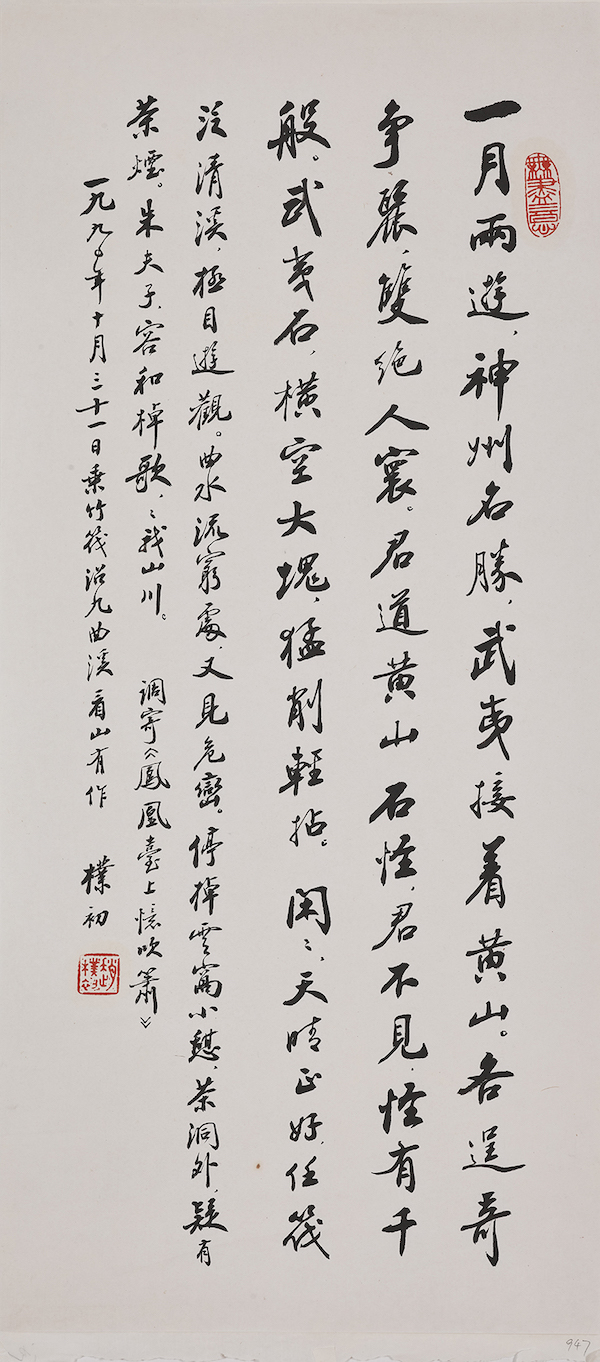 一月兩遊，神州名勝，武夷接着黃山。各逞奇
爭麗，雙絕人寰。君道黃山石怪，君不見，怪有千
般。武夷石，橫空大塊，猛削輕拈。 閑〻，天晴正好，任筏
泛清溪，極目遊觀。曲水流窮處，又見危巒。停棹雲窩小憩，茶洞外，疑有
茶煙。朱夫子，容和棹歌，〻我山川。 調寄《鳳凰臺上憶吹簫》
一九九〇年十月三十一日乘竹筏沿九曲溪看山有作 樸初
無盡意
趙樸初
947